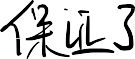 保证了